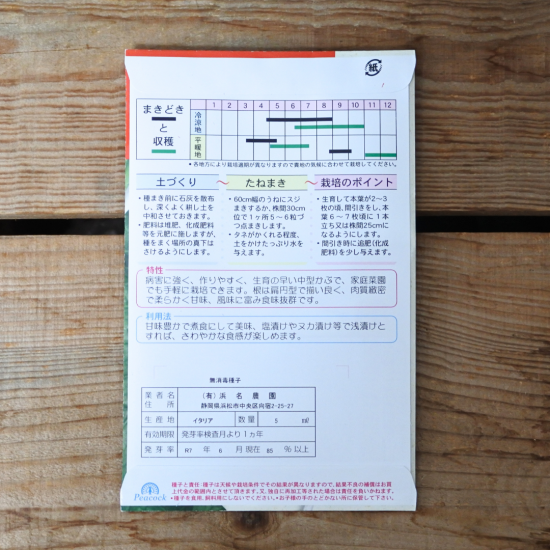 紙
まきどき
と
収穫
1 2 3 4 5 6 7 8 9 10 11 12
冷涼地
平暖地
•各地方により栽培適期が異なりますので貴地の気候に合わせて栽培してください。
土づくり たねまき 栽培のポイント
•種まき前に石灰を散布
し、深くよく耕し土を
中和させておきます。
•肥料は堆肥、化成肥料
等を元肥に施しますが、
種をまく場所の真下は
さけるようにします。
•60cm幅のうねにスジ
まきするか、株間30cm
位で1ヶ所5～6粒づ
つ点まきします。
•タネがかくれる程度、
土をかけたっぷり水を
与えます。
•生育して本葉が2～3
枚の頃、間引きをし、本
葉6～7枚頃に1本
立ち又は株間25cmに
なるようにします。
•間引き時に追肥(化成
肥料)を少し与えます。
特性
病害に強く、作りやすく、生育の早い中型かぶで、家庭菜園
でも手軽に栽培できます。根は扁円型で揃い良く、肉質緻密
で柔らかく甘味、風味に富み食味抜群です。
利用法
甘味豊かで煮食にして美味、塩漬けやヌカ漬け等で浅漬けと
すれば、さわやかな食感が楽しめます。
無消毒種子
業者名 (有)浜名農園
住所 静岡県浜松市中央区向宿2-25-27
生産地 イタリア 数量 5 ml
有効期限 発芽率検査月より1ヵ年
発芽率 R7 年 6 月現在 85 %以上
Peacock
種子と責任 種子は天候や栽培条件でその結果が異なりますので、結果不良の補償はお買
上代金の範囲内とさせて頂きます。又、独自に再加工等された場合は責任を負いかねます。
•種子を食用、飼料用にしないでください。•お子様の手のとどかない所に保管して下さい。